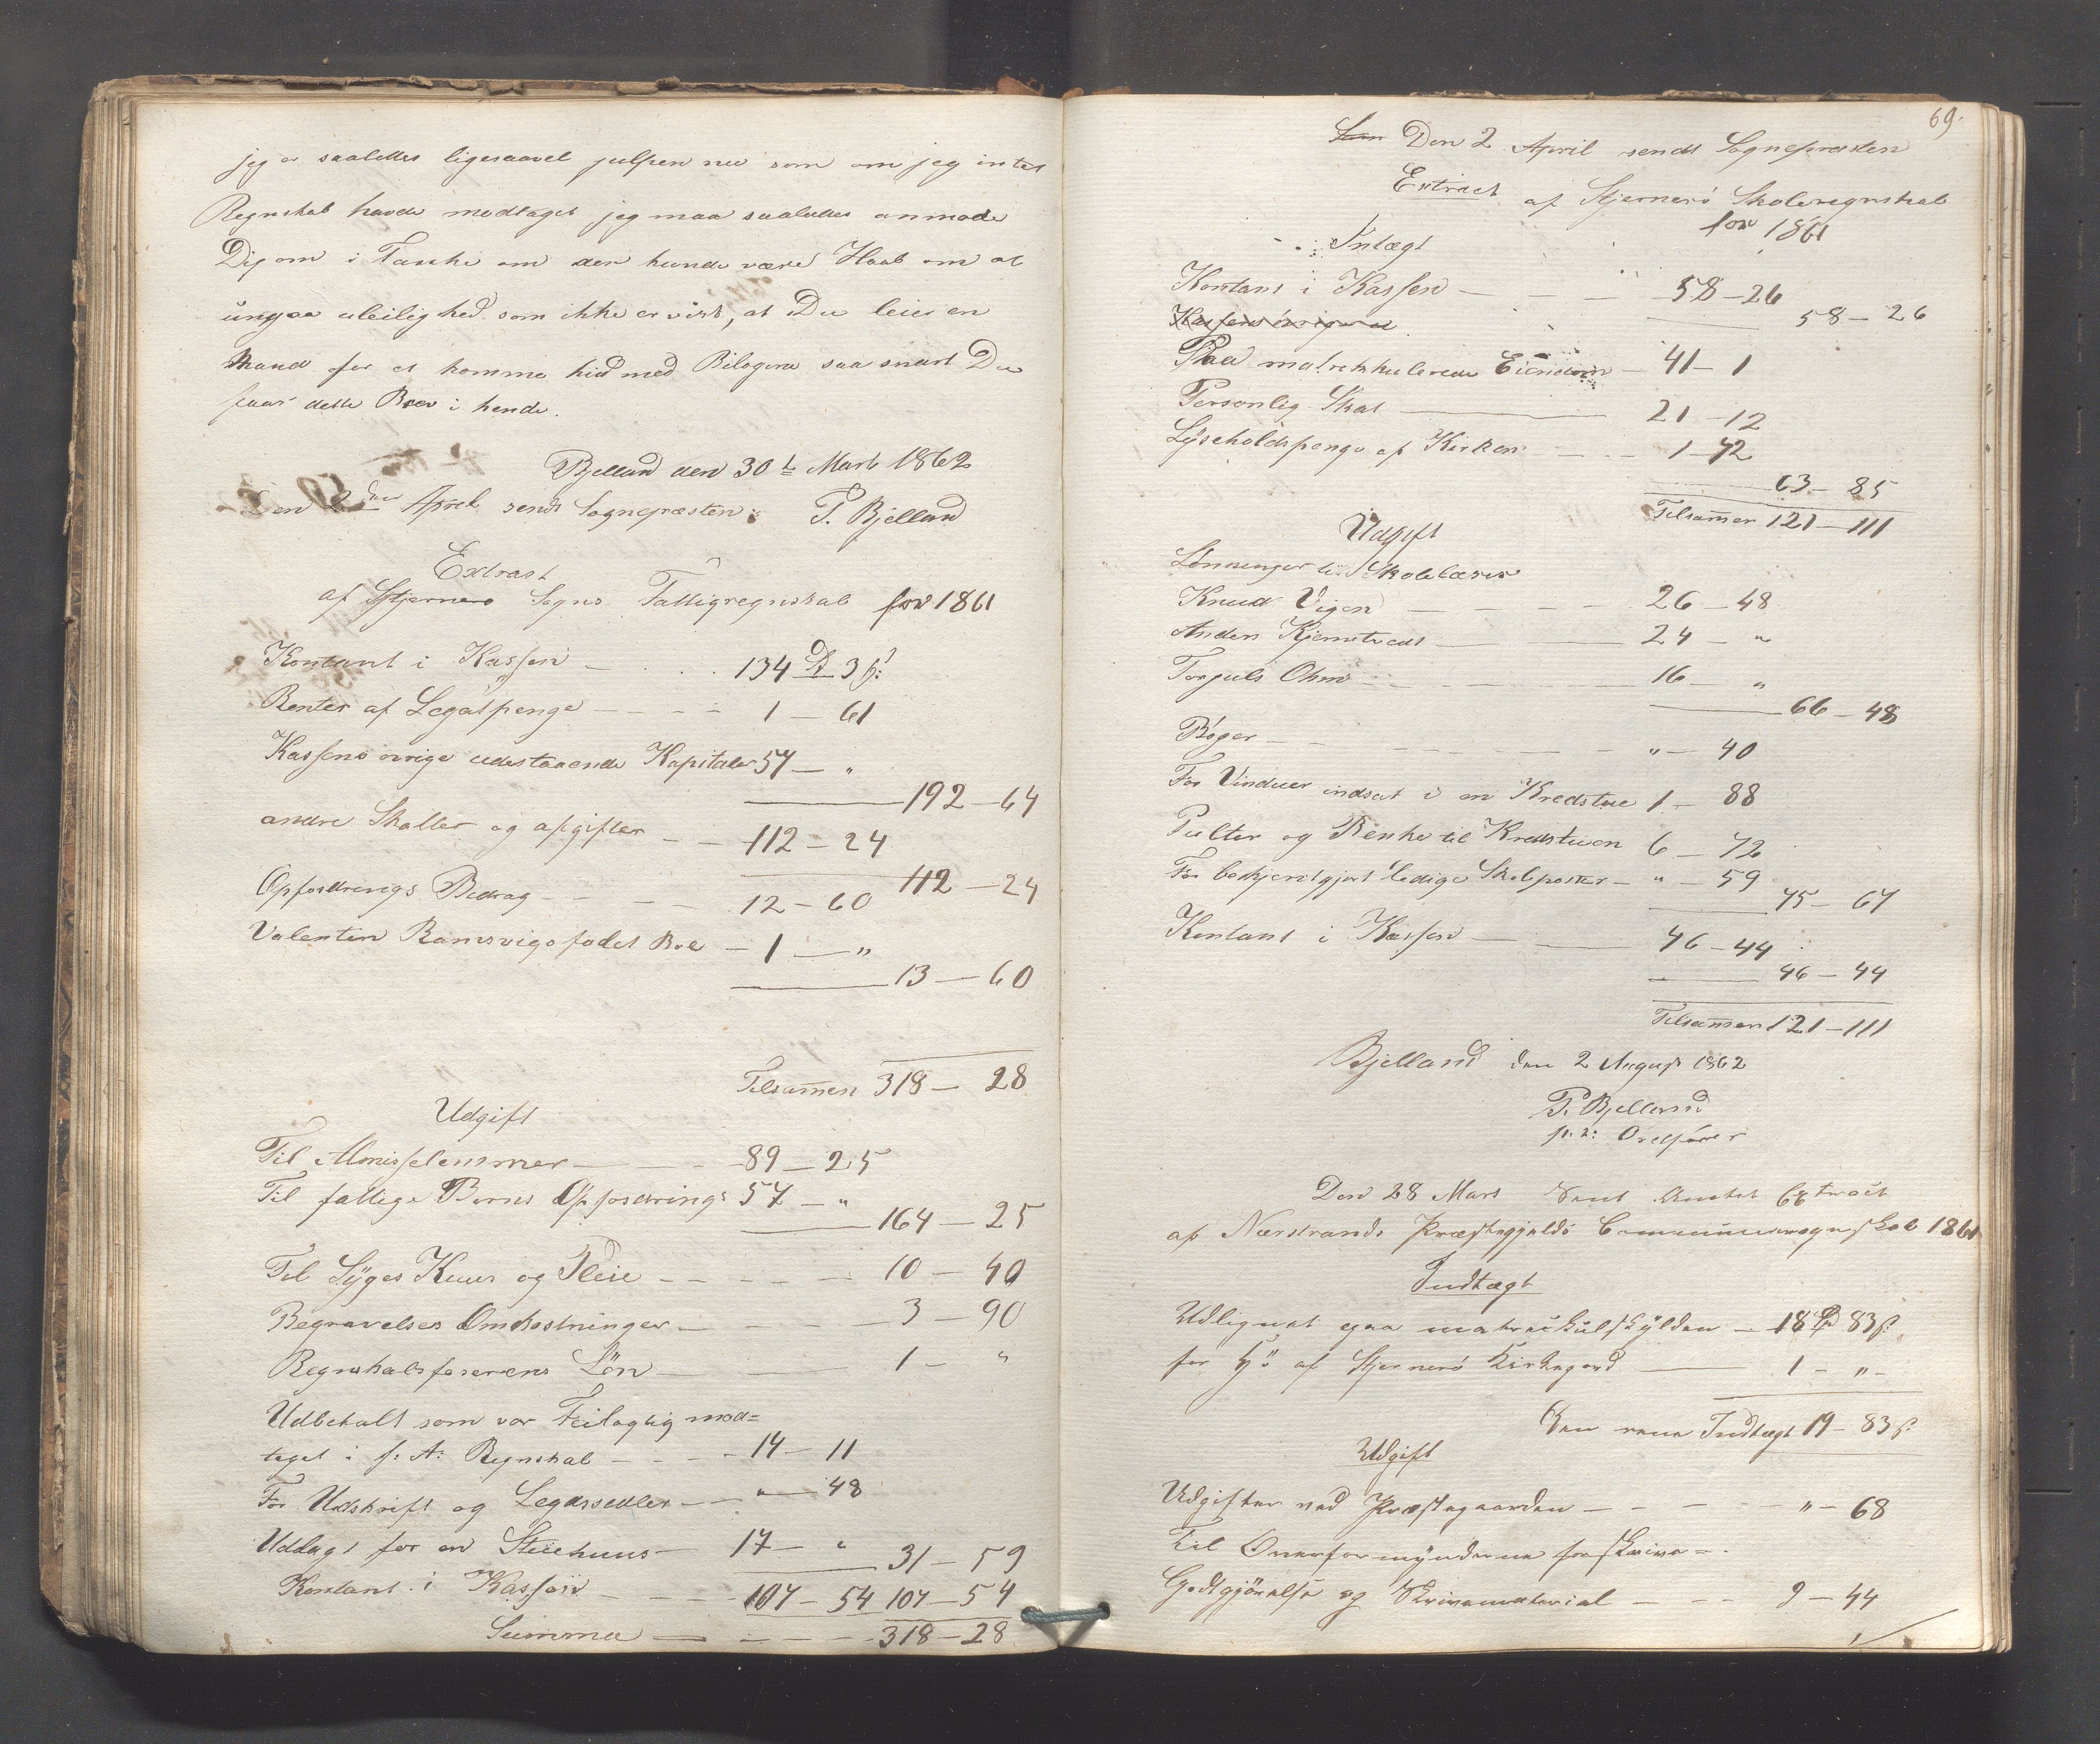 jeg er saaledes ligesaavel julpen nu som om jeg intet
Regnskab havde modtaget jeg maa saaledes anmode
Dig om i Fald der kunde være Haab om at
undgaa uleilighed som ikke er vist, at Du leier en
Mand for at komme hid med Bilagene saa snart Du
faar dette Brev i hende.
Bjelland den 30te Marts 1862
Den 2den April sendt Sognepræsten: P. Bjelland
Extract
af Stjernerø Sogns Fattigregnskab for 1861
Kontant i Kassen — 134 D 3 ß:
Renter af Legatpenge — — — 1 — 61
Kassens øvrige udestaaende Kapitaler 57 — "
192 — 64
andre Skatter og afgifter — — 112 — 24
112 — 24
Opfostrings Bidrag — — — 12 — 60
Valentin Ramsvigs fadet Boe — 1 — "
13 — 60
Tilsammen 318 — 28
Udgift
Til Almisselemmer — — — 89 — 25
Til fattige Børns Opfostrings 57 — "
164 — 25
Til Syges Kuur og Pleie — — — — 10 — 40
Begravelses Omkostninger — — — — 3 — 90
Regnskabsførerens Løn — — — 1 — "
Udbetalt som var Feilagtig mod=
taget i f. A: Regnskab — — — 14 — 11
For Udskrift og Legdssedler — — " — 48
Uddlagt for en Stuehuus — 17 — "
31 — 59
Kontant i Kassen — — — 107 — 54 107 — 54
Summa — — — — 318 — 28
69.
Den 2 April sendt Sognepræsten
Extract af Stjernerø Skoleregnskab
for 1861
Intægt
Kontant i Kassen — — — 58 — 26
58 — 26
Kassens øvrige
Paa matrekkulerede Eiendom — 41 — 1
Personlig Skat — 21 — 12
Lyseholdspenge af Kirken — — 1 — 72
63 — 85
Tilsammen 121 — 111
Udgift
Lønninger til Skolelærer
Knud Vigen — — — — 26 — 48
Anders Kjemstvedt — 24 — "
Torjuls Ohm — — — 16 — "
66 — 48
Bøger — — — — — " — 40
For Vinduer indsat i en Kredstue 1 — 88
Pulter og Benke til Kredstuen 6 — 72
For bekjentgjort ledige Skoleposter — " — 59
75 — 67
Kontant i Kassen — — 46 — 44
46 — 44
Tilsammen 121 — 111
Bjelland den 2 August 1862
P. Bjelland
p. t: Ordfører
Den 28 Mars sent Amtet Extract
af Nærstrands Præstegjelds Communeregnskab 1861
Indtægt
Udlignet paa matreckulskylden — 18 D 83 ß.
for af Stjernerø Kirkegord — 1 — " —
Den rene Indtægt 19 — 83 ß
Udgift
Udgifter ved Præstegaarden — — — " — 68
Til Overformynderne for skrive=
Godtgjørelse og Skrivematerial — — — 9 — 44